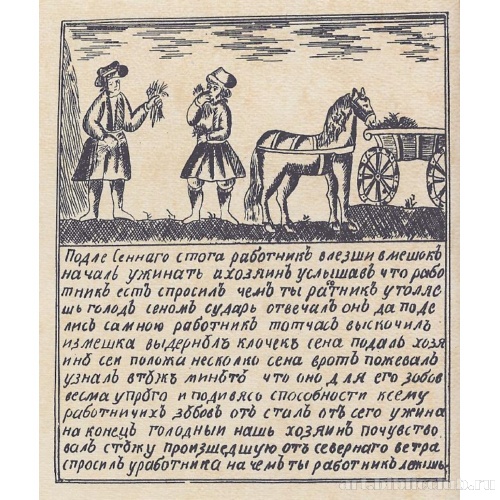 Подле Сеннаго стога работникъ влезши вмешокъ
началъ ужинать ахозяинъ услышавъ что рабо
тникъ естъ спросилъ чемъ ты ратникъ утоляе
шь голодъ сеномъ сударь отвечалъ онъ да поде
лись самною работникъ тотчасъ выскочилъ
измешка выдернѣлъ клочекъ сена подалъ хозя
инѣ сеи положа несколко сена вротъ пожевалъ
узналъ втѣжъ минѣтѣ что оно для его зѣбовъ
весма упрѣго и подивясь способности ксему
работничихъ зѣбовъ отъ сталъ отъ сего ужина
на конецъ голодныи нашъ хозяинъ почувство
валъ стѣжу произшедшую отъ севернаго ветра
спросилъ уработника на чемъ ты работникъ лежишь
art.biblioclub.ru